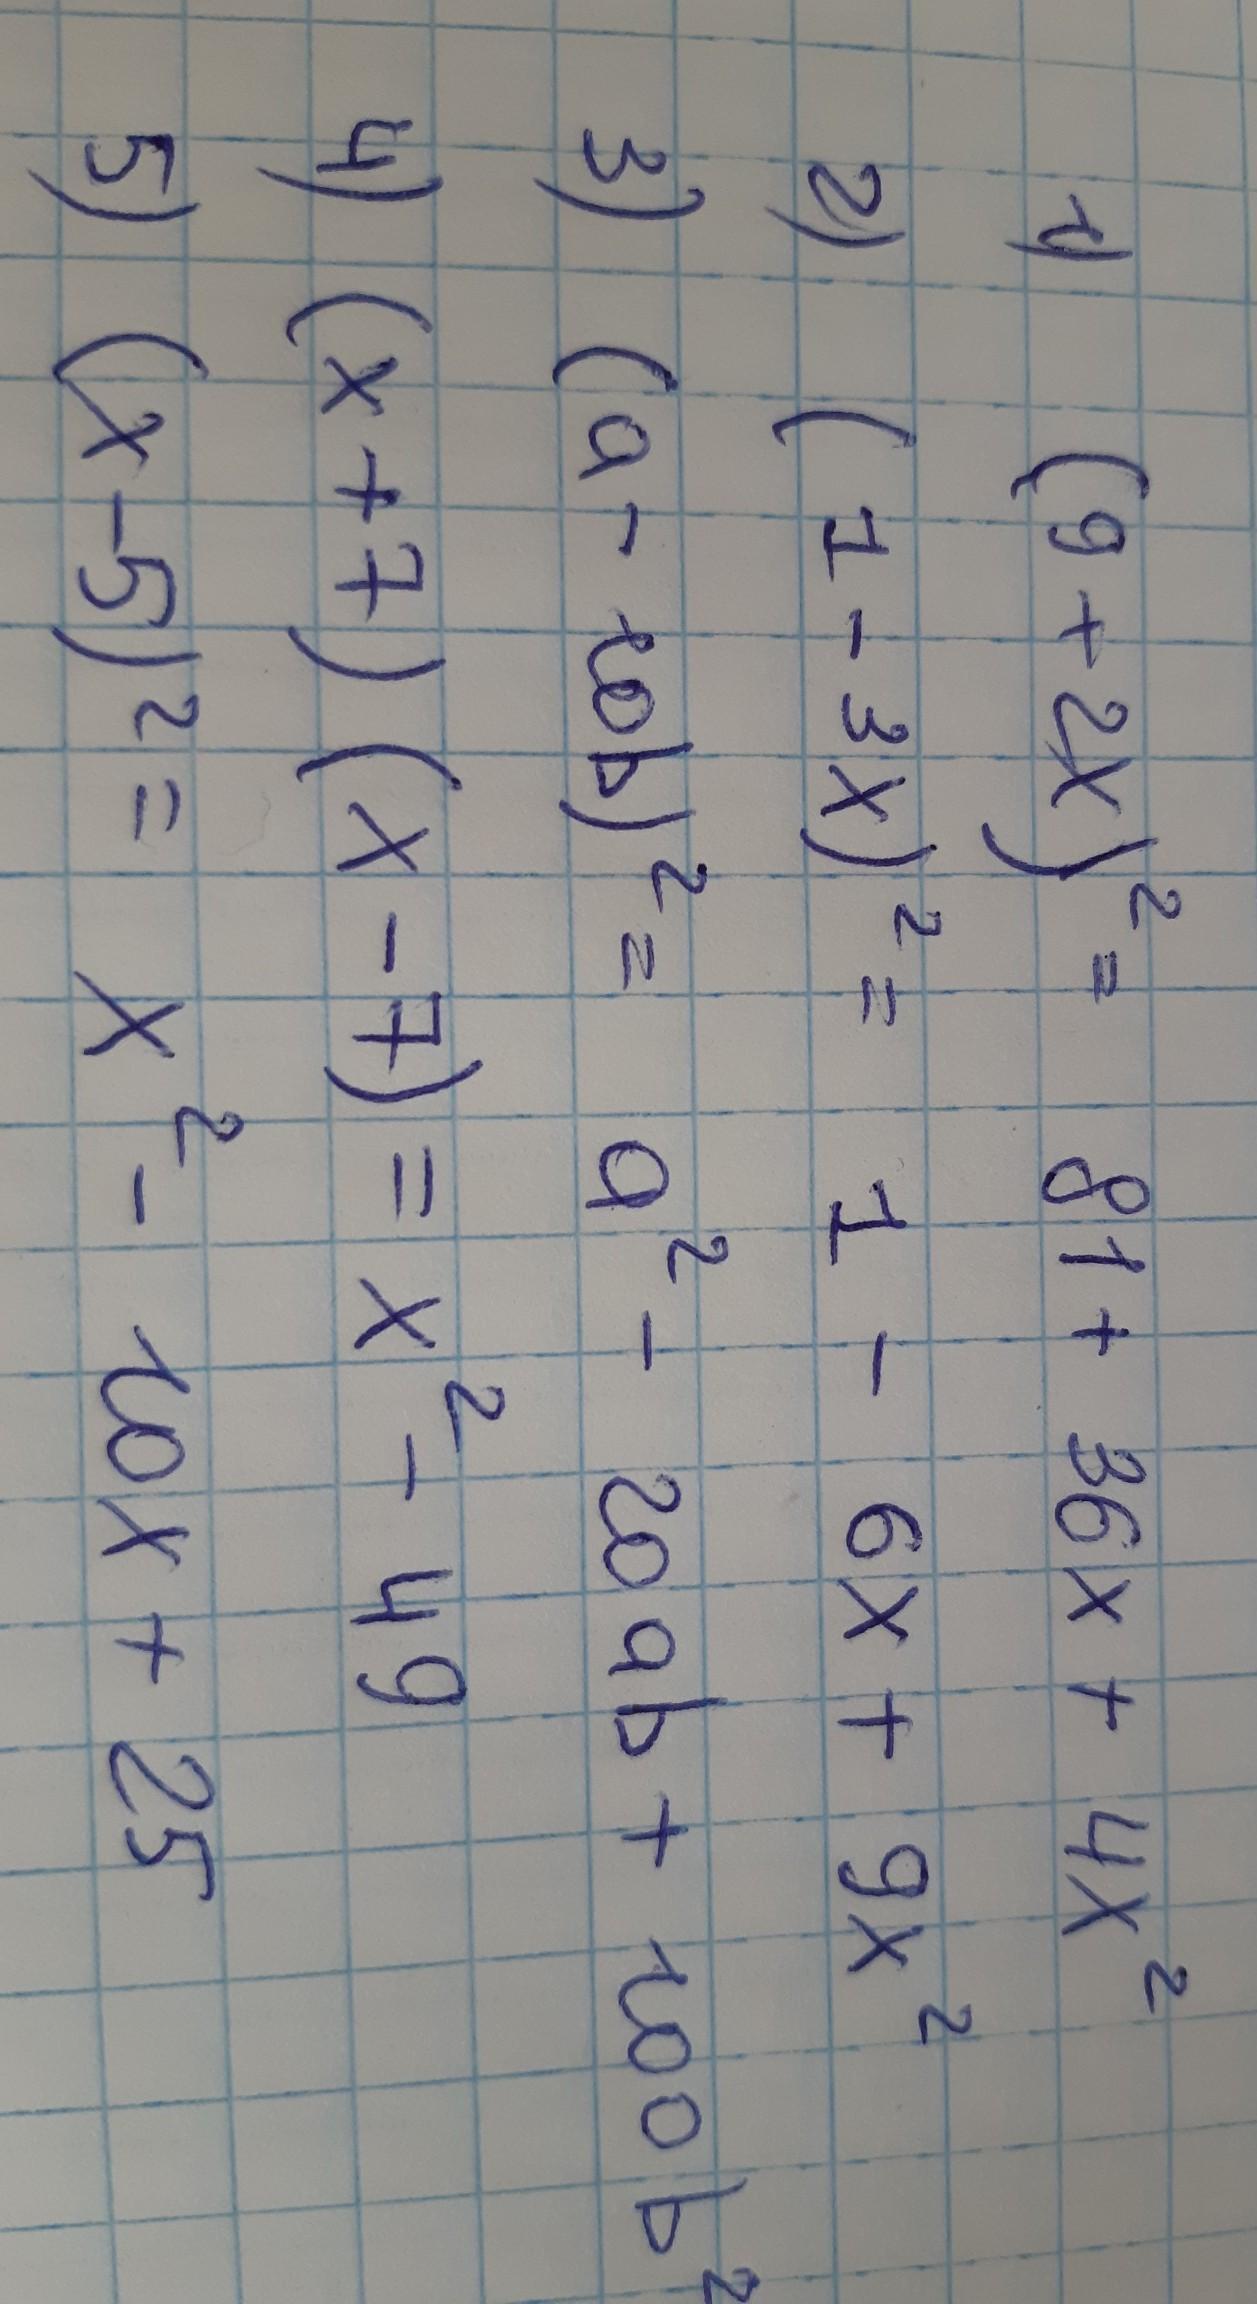 1) (9 + 2x)² = 81 + 36x + 4x²
2) (1 - 3x)² = 1 - 6x + 9x²
3) (a - 10b)² = a² - 20ab + 100b²
4) (x + 7) (x - 7) = x² - 49
5) (x - 5)² = x² - 10x + 25